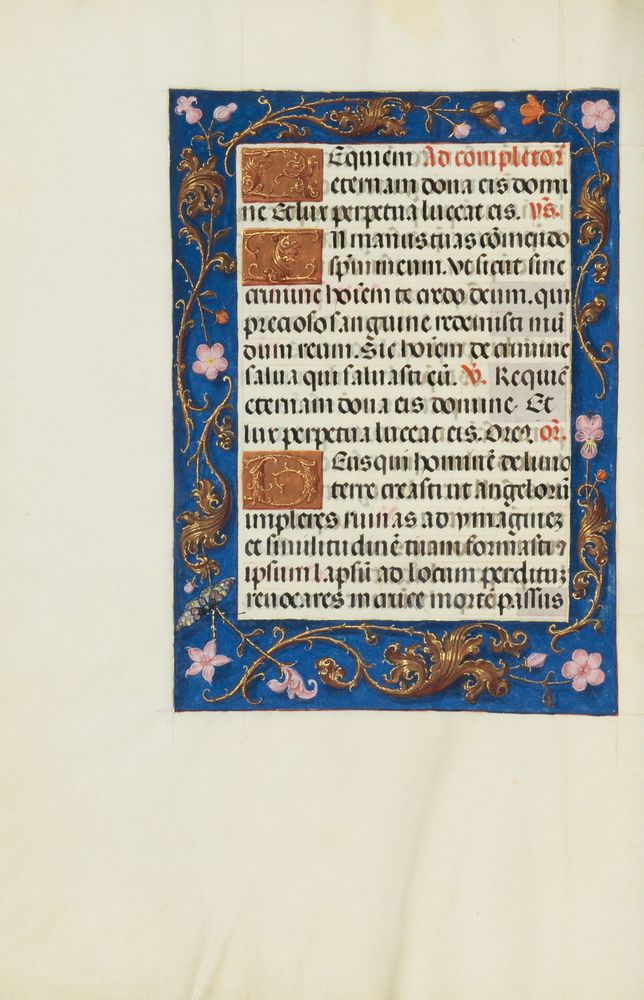 Requiem Ad completoꝝ
eternam dona eis domi
ne Et lux perpetua luceat eis. v̄s.
In manus tuas cōmendo
sp̄m meum. Vt sicut sine
crimine hoīem te credo deum. qui
precioso sanguine redemisti mū
dum reum. Sic hoīem de crimine
salua qui saluasti eū. v̄. Requiē
eternam dona eis domine. Et
lux perpetua luceat eis. Orem9. or̄.
Deus qui hominē de limo
terre creasti ut angelorū
impleres ruinas ad ymaginez
et similitudinē tuam formasti
ipsum lapsū ad locum perditūz
reuocares in cruce mortē passus